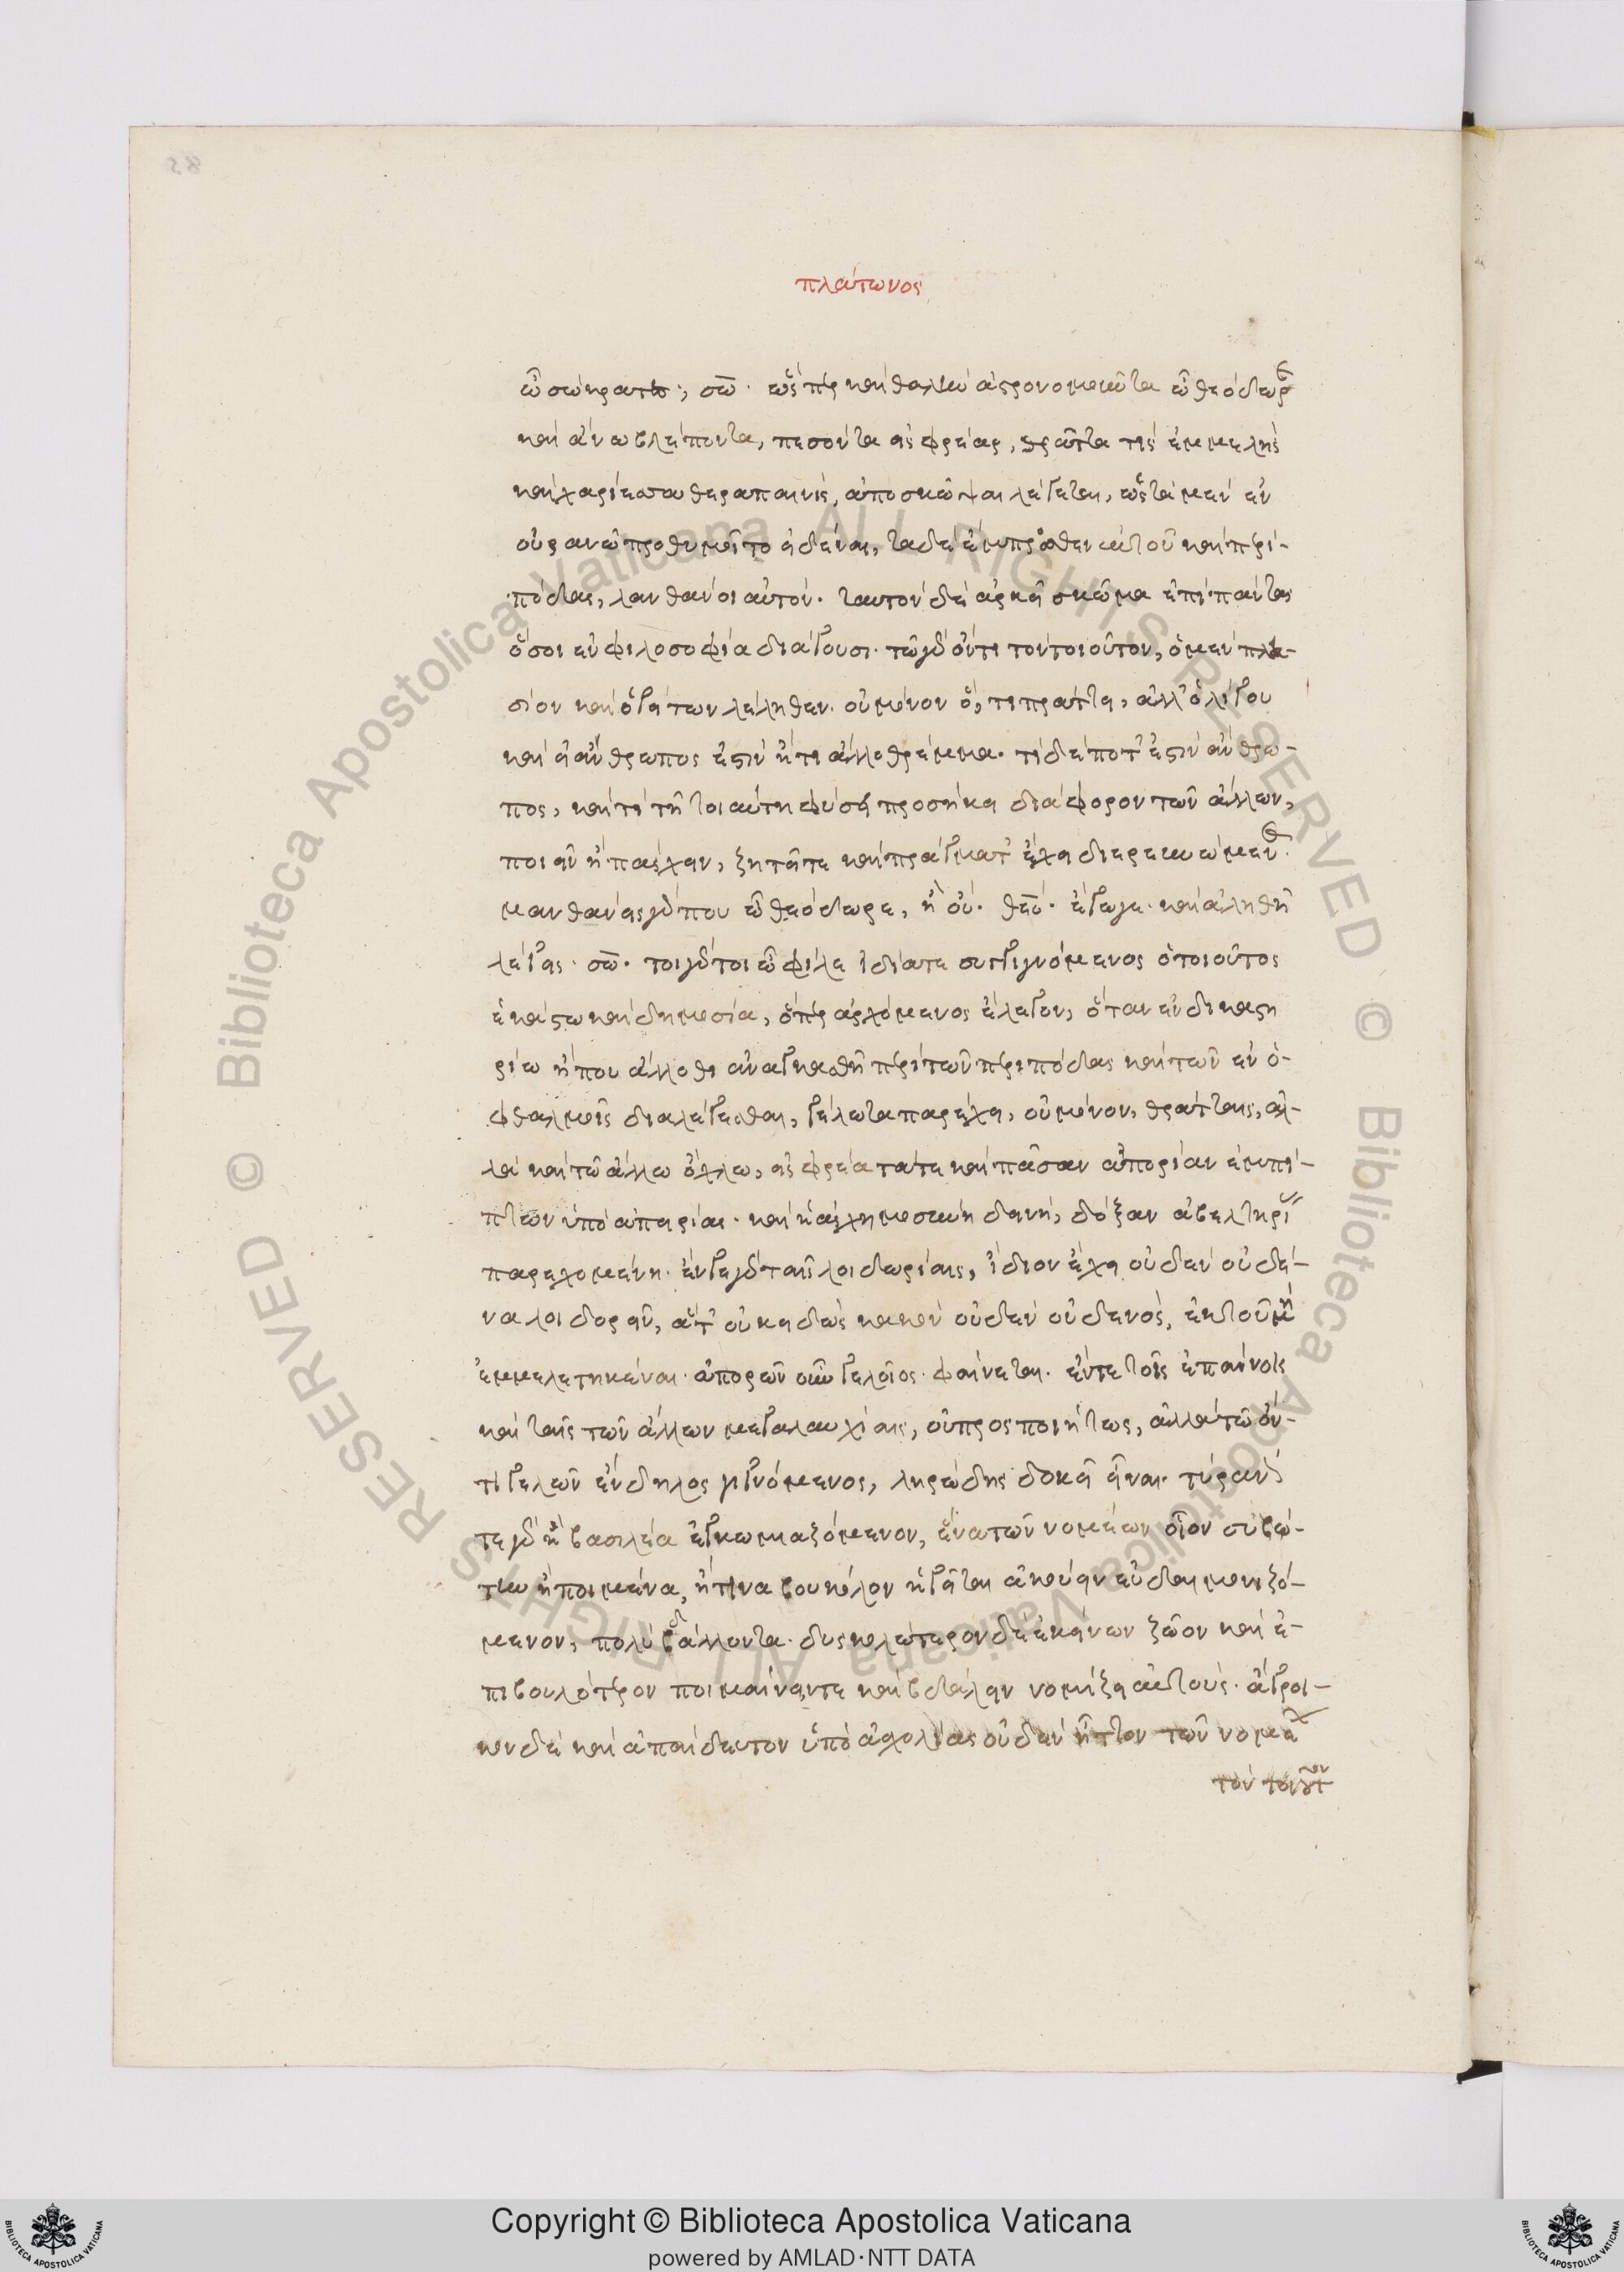 πλάτωνος
ὦ σώκρατες; σω. ὥσπερ καὶ θαλῆν ἀστρονομοῦντα ὦ θεόδωρε
καὶ ἄνω βλέποντα, πεσόντα εἰς φρέαρ, θρᾶττα τίς ἐμμελὴς
καὶ χαρίεσσα θεραπαινὶς, ἀποσκῶψαι λέγεται, ὡς τὰ μὲν ἐν
οὐρανῶ προθυμοῖτο εἰδέναι, τὰ δὲ ἔμπροσθεν αὐτοῦ καὶ περὶ-
πόδας, λανθάνοι αὐτόν. ταυτὸν δὲ ἀρκεῖ σκῶμμα ἐπὶ πάντας
ὅσοι ἐν φιλοσοφία διάγουσι. τῶ γὰρ ὄντι τὸν τοιοῦτον, ὁ μὲν πλη-
σίον καὶ ὁ γείτων λέληθεν. οὐ μόνον ὅ, τι πράττει, ἀλλ' ὀλίγου
καὶ εἰ ἄνθρωπος ἐστὶν ἤ τι ἄλλο θρέμμα. τί δέ ποτ' ἐστὶν ἄνθρω-
πος, καὶ τί τῆ τοιαύτη φύσει προσήκει διάφορον τῶν ἄλλων,
ποιεῖν ἢ πάσχειν, ζητεῖ τε καὶ πράγματ' ἔχει διερευνώμενος.
μανθάνεις γάρ που ὦ θεόδωρε, ἢ οὔ. θεό. ἔγωγε. καὶ ἀληθῆ
λέγεις. σω. τοιγάρτοι ὦ φίλε ἰδία τε συγγιγνόμενος ὁ τοιοῦτος
ἑκάστω καὶ δημοσία, ὅπερ ἀρχόμενος ἔλεγον, ὅταν ἐν δικαστη
ρίω ἤ που ἄλλοθι ἀναγκασθῆ περὶ τῶν περὶ πόδας καὶ τῶν ἐν ὀ-
φθαλμοῖς διαλέγεσθαι, γέλωτα παρέχει, οὐ μόνον, θράτταις, ἀλ-
λὰ καὶ τῶ ἄλλω ὄχλω, εἰς φρέατά τε καὶ πᾶσαν ἀπορίαν ἐμπί-
πτων ὑπὸ ἀπειρίας. καὶ ἡ ἀσχημοσύνη δεινὴ, δόξαν ἀβελτηρίας
παρεχομένη. ἔν τε γὰρ ταῖς λοιδωρίαις, ἴδιον ἔχει οὐδὲν οὐδέ-
να λοιδορεῖν, ἅτ' οὐκ εἰδὼς κακὸν οὐδὲν οὐδενὸς, ἐκ τοῦ μὴ
ἐμμελετηκέναι. ἀπορῶν οὖν γελοῖος φαίνεται. ἔν τε τοῖς ἐπαίνοις
καὶ ταῖς τῶν ἄλλων μεγαλαυχίαις, οὐ προσποιήτως, ἀλλὰ τῶ ὄν-
τι γελῶν ἔνδηλος γιγνόμενος, ληρώδης δοκεῖ εἶναι. τύραννόν
τε γὰρ ἢ βασιλέα ἐγκωμιαζόμενον, ἕνα τῶν νομέων οἷον συβώ-
την ἢ ποιμένα, ἤ τινα βουκόλον ἡγεῖται ἀκούειν εὐδαιμονιζό-
μενον, πολὺ βδάλλοντα. δυσκολώτερον δὲ ἐκείνων ζῶον καὶ ἐ-
πιβουλότερον ποιμαίνειν τε καὶ βδάλειν νομίζει αὐτούς. ἄγροι-
κον δὲ καὶ ἀπαίδευτον ὑπὸ ἀσχολίας οὐδὲν ἧττον τῶν νομέων
τὸν τοιοῦτον